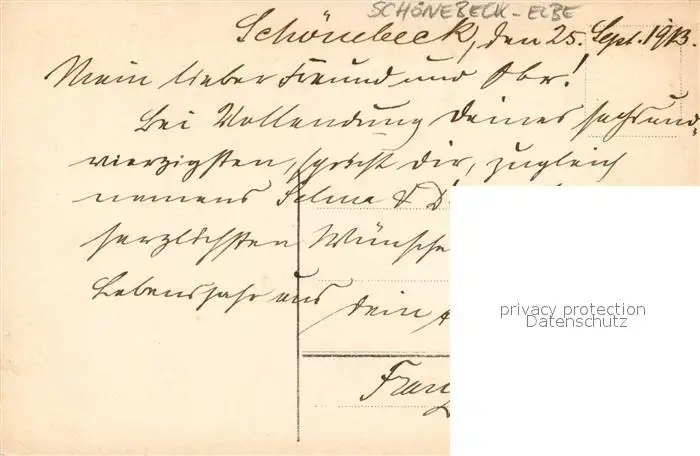 SCHÖNEBECK - ELBE
Schönebeck, den 25. Sept. 1913.
Mein lieber Freund und Obr.!
Bei Vollendung Deines sechsund-
vierzigsten, spricht Dir, zugleich
namens Selma &
herzlichsten Wünsche
Lebensjahr aus
Dein
Franz
privacy protection
Datenschutz